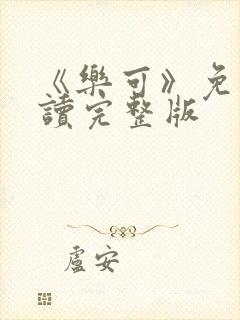 《樂可》免
讀完整版
盧安